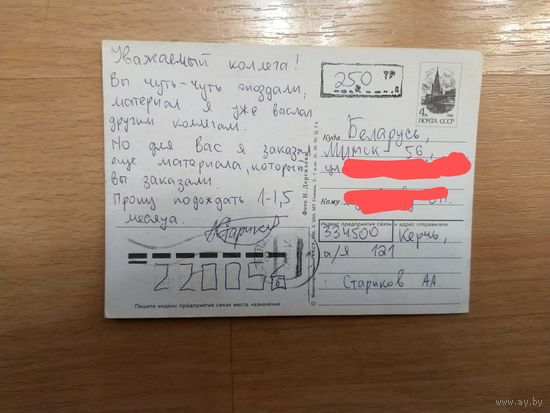 Уважаемый коллега!
Вы чуть-чуть опоздали,
материал я уже выслал
другим коллегам.
Но для Вас я заказал
еще материала, который
вы заказали.
Прошу подождать 1-1,5
месяца.
250 ТР
4к
ПОЧТА СССР
Куда Беларусь,
Минск-56,
Кому
Индекс предприятия связи и адрес отправителя
334500 Керчь,
а/я 121
Стариков АА.
220056
Пишите индекс предприятия связи места назначения
Фото И. Дергилева
www.ay.by